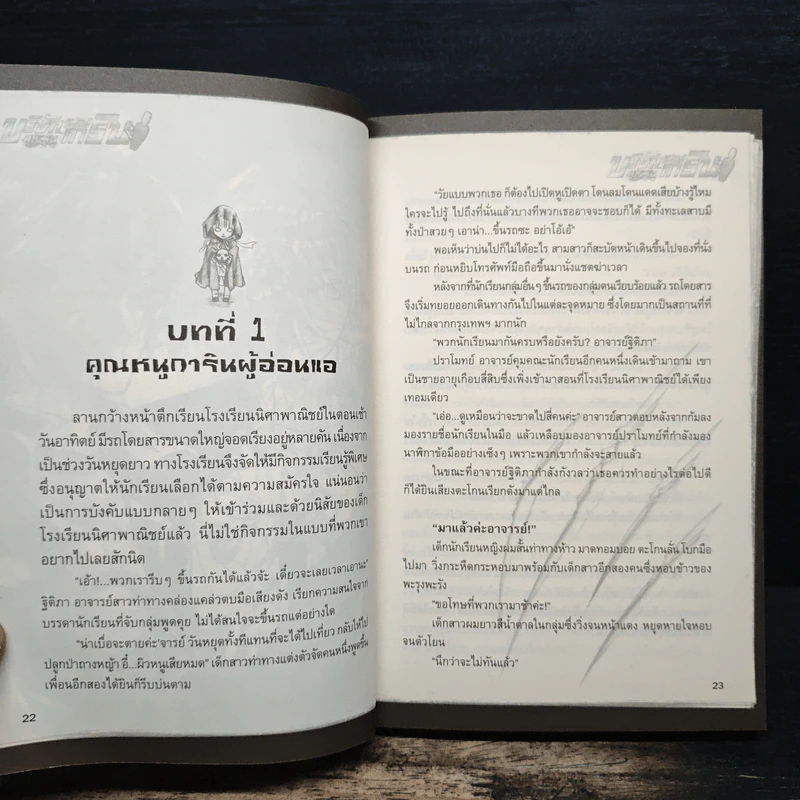 บทที่ 1
คุณหนูการินผู้อ่อนแอ
ลานกว้างหน้าตึกเรียนโรงเรียนนิศาพาณิชย์ในตอนเช้า
วันอาทิตย์ มีรถโดยสารขนาดใหญ่จอดเรียงอยู่หลายคัน เนื่องจาก
เป็นช่วงวันหยุดยาว ทางโรงเรียนจึงจัดให้มีกิจกรรมเรียนรู้พิเศษ
ซึ่งอนุญาตให้นักเรียนเลือกได้ตามความสมัครใจ แน่นอนว่า
เป็นการบังคับแบบกลายๆ ให้เข้าร่วมและด้วยนิสัยของเด็ก
โรงเรียนนิศาพาณิชย์แล้ว นี่ไม่ใช่กิจกรรมในแบบที่พวกเขา
อยากไปเลยสักนิด
"เอ้า!...พวกเรารีบๆ ขึ้นรถกันได้แล้วจ้ะ เดี๋ยวจะเลยเวลาเอานะ"
ฐิติภา อาจารย์สาวท่าทางคล่องแคล่วตบมือเสียงดัง เรียกความสนใจจาก
บรรดานักเรียนที่จับกลุ่มพูดคุย ไม่ได้สนใจจะขึ้นรถแต่อย่างใด
"น่าเบื่อจะตายค่ะ'จารย์ วันหยุดทั้งทีแทนที่จะได้ไปเที่ยว กลับให้ไป
ปลูกป่าถางหญ้า อี๋...ผิวหนูเสียหมด" เด็กสาวท่าทางแต่งตัวจัดคนหนึ่งพูดขึ้น
เพื่อนอีกสองได้ยินก็รีบบ่นตาม
22
"วัยแบบพวกเธอ ก็ต้องไปเปิดหูเปิดตา โดนลมโดนแดดเสียบ้างรู้ไหม
ใครจะไปรู้ ไปถึงที่นั่นแล้วบางทีพวกเธออาจจะชอบก็ได้ มีทั้งทะเลสาบมี
ทั้งป่าสวยๆ เอาน่า...ขึ้นรถซะ อย่าโอ้เอ้"
พอเห็นว่าบ่นไปก็ไม่ได้อะไร สามสาวก็สะบัดหน้าเดินขึ้นไปจองที่นั่ง
บนรถ ก่อนหยิบโทรศัพท์มือถือขึ้นมานั่งแชตฆ่าเวลา
หลังจากที่นักเรียนกลุ่มอื่นๆ ขึ้นรถของกลุ่มตนเรียบร้อยแล้ว รถโดยสาร
จึงเริ่มทยอยออกเดินทางกันไปในแต่ละจุดหมาย ซึ่งโดยมากเป็นสถานที่ที่
ไม่ไกลจากกรุงเทพฯ มากนัก
"พวกนักเรียนมากันครบหรือยังครับ? อาจารย์ฐิติภา"
ปราโมทย์ อาจารย์คุมคณะนักเรียนอีกคนหนึ่งเดินเข้ามาถาม เขา
เป็นชายอายุเกือบสี่สิบซึ่งเพิ่งเข้ามาสอนที่โรงเรียนนิศาพาณิชย์ได้เพียง
เทอมเดียว
"เอ่อ...ดูเหมือนว่าจะขาดไปสี่คนค่ะ" อาจารย์สาวตอบหลังจากก้มลง
มองรายชื่อนักเรียนในมือ แล้วเหลือบมองอาจารย์ปราโมทย์ที่กำลังมอง
นาฬิกาข้อมืออย่างเซ็งๆ เพราะพวกเขากำลังจะสายแล้ว
ในขณะที่อาจารย์ฐิติภากำลังกังวลว่าเธอควรทำอย่างไรต่อไปดี
ก็ได้ยินเสียงตะโกนเรียกดังมาแต่ไกล
"มาแล้วค่ะอาจารย์!"
เด็กนักเรียนหญิงผมสั้นท่าทางห้าว มาดทอมบอย ตะโกนลั่น โบกมือ
ไปมา วิ่งกระหืดกระหอบมาพร้อมกับเด็กสาวอีกสองคนซึ่งหอบข้าวของ
พะรุงพะรัง
"ขอโทษที่พวกเรามาช้าค่ะ!"
เด็กสาวผมยาวสีน้ำตาลในกลุ่มซึ่งวิ่งจนหน้าแดง หยุดหายใจหอบ
จนตัวโยน
"นึกว่าจะไม่ทันแล้ว"
23